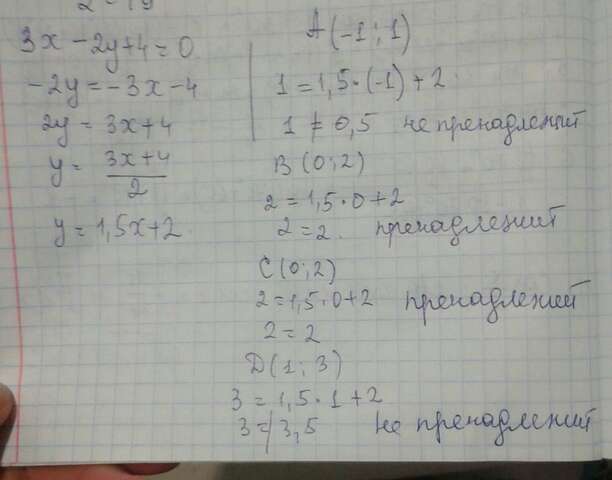 3x - 2y + 4 = 0
-2y = -3x - 4
2y = 3x + 4
y = \frac{3x+4}{2}
y = 1,5x + 2
A (-1; 1)
1 = 1,5 · (-1) + 2
1 ≠ 0,5 не пренадлежит
B (0; 2)
2 = 1,5 · 0 + 2
2 = 2. пренадлежит
C (0; 2)
2 = 1,5 · 0 + 2 пренадлежит
2 = 2
D (1; 3)
3 = 1,5 · 1 + 2
3 ≠ 3,5 не пренадлежит